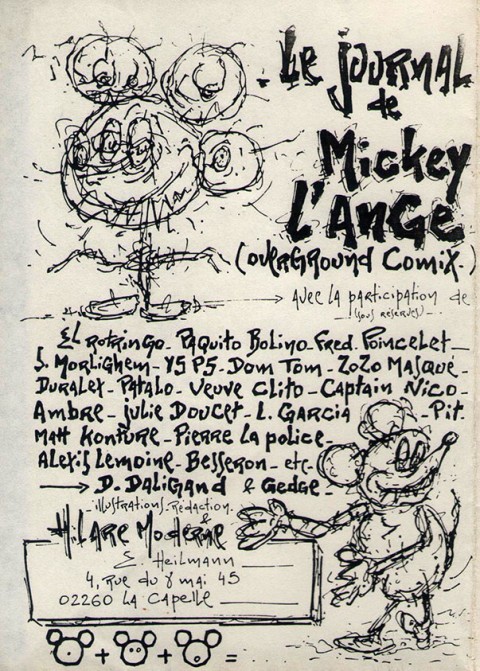 Le journal
de
Mickey
l'Ange
(overGround Comix.)
avec la participation de
(sous réserves)
El Rotringo - Paquito Bolino - Fred Poincelet -
S. Morlighem - Y5 P5 - Dom Tom - ZoZo Masqué -
Duralex - Patalo - Veuve Clito - Captain Nico -
Ambre - Julie Doucet - L. Garcia - Pit.
Matt Konture - Pierre La police -
Alexis Lemoine - Besseron - etc -
D. Daligand & Gedge -
illustrations - rédaction.
&
Hilare Moderne
E. Heilmann
4, rue du 8 mai 45
02260 La Capelle
+ + =